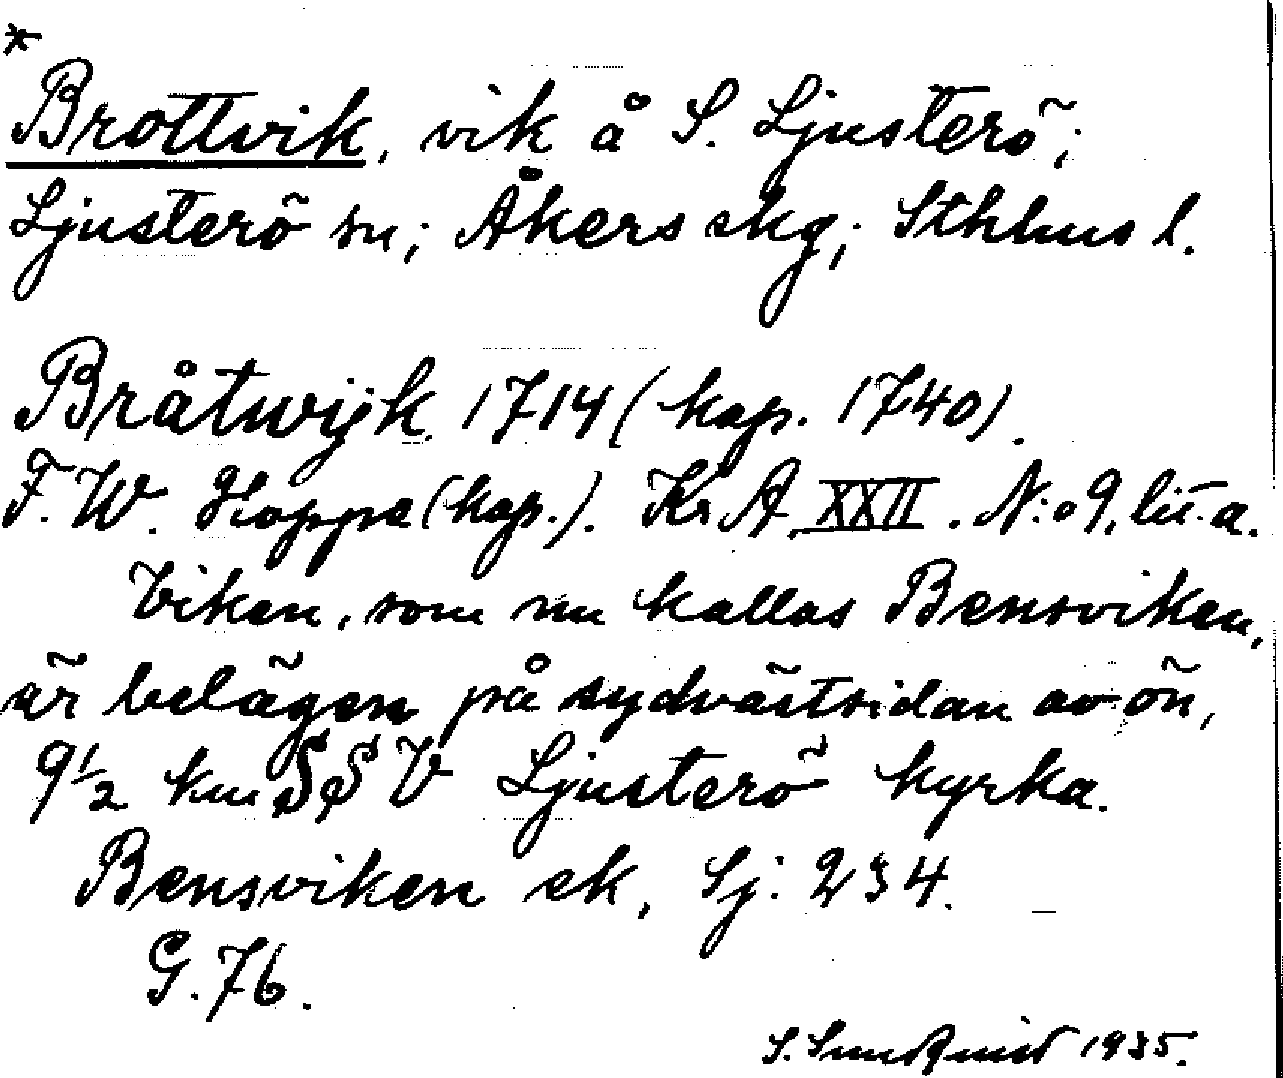 *
Brottvik, vik å S. Ljusterö;
Ljusterö sn; Åkers skg; Sthlms l.
Bråtwijk 1714 (kop. 1740).
F. W. Hoppe (kop.). Kr A XXII. N:o 9, lit. a.
Viken, som nu kallas Bensviken,
är belägen på sydvästsidan av ön,
9 1/2 km SSV Ljusterö kyrka.
Bensviken ek, Sj: 234.
G. 76.
S. Sundqvist 1935.